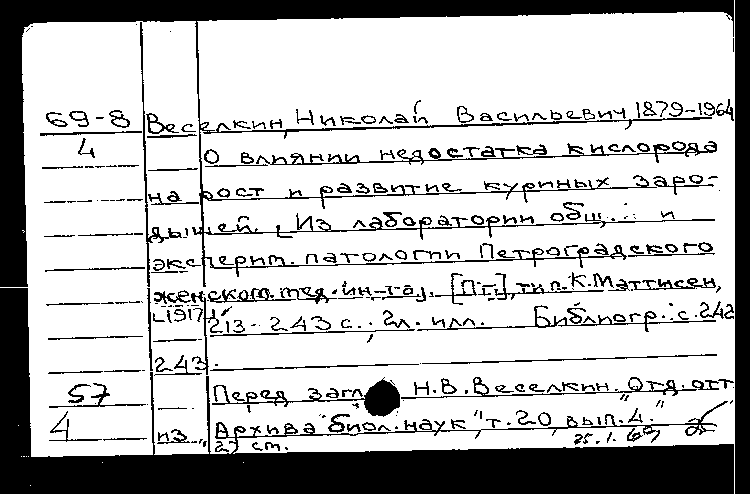 69-8 Веселкин, Николай Васильевич, 1879-1964
4 О влиянии недостатка кислорода
на рост и развитие куриных заро-
дышей. [Из лаборатории общ. и
эксперим. патологии Петроградского
женского мед. ин-та]. [Пг.], тип. К. Маттисен,
[1917]. 213-243 с., 2 л. илл. Библиогр.: с. 242
243.
57 Перед загл. Н.В. Веселкин. "Отд. отт.
4 из "Архива биол. наук", т. 20, вып. 4."
27 ст. 25.1.69